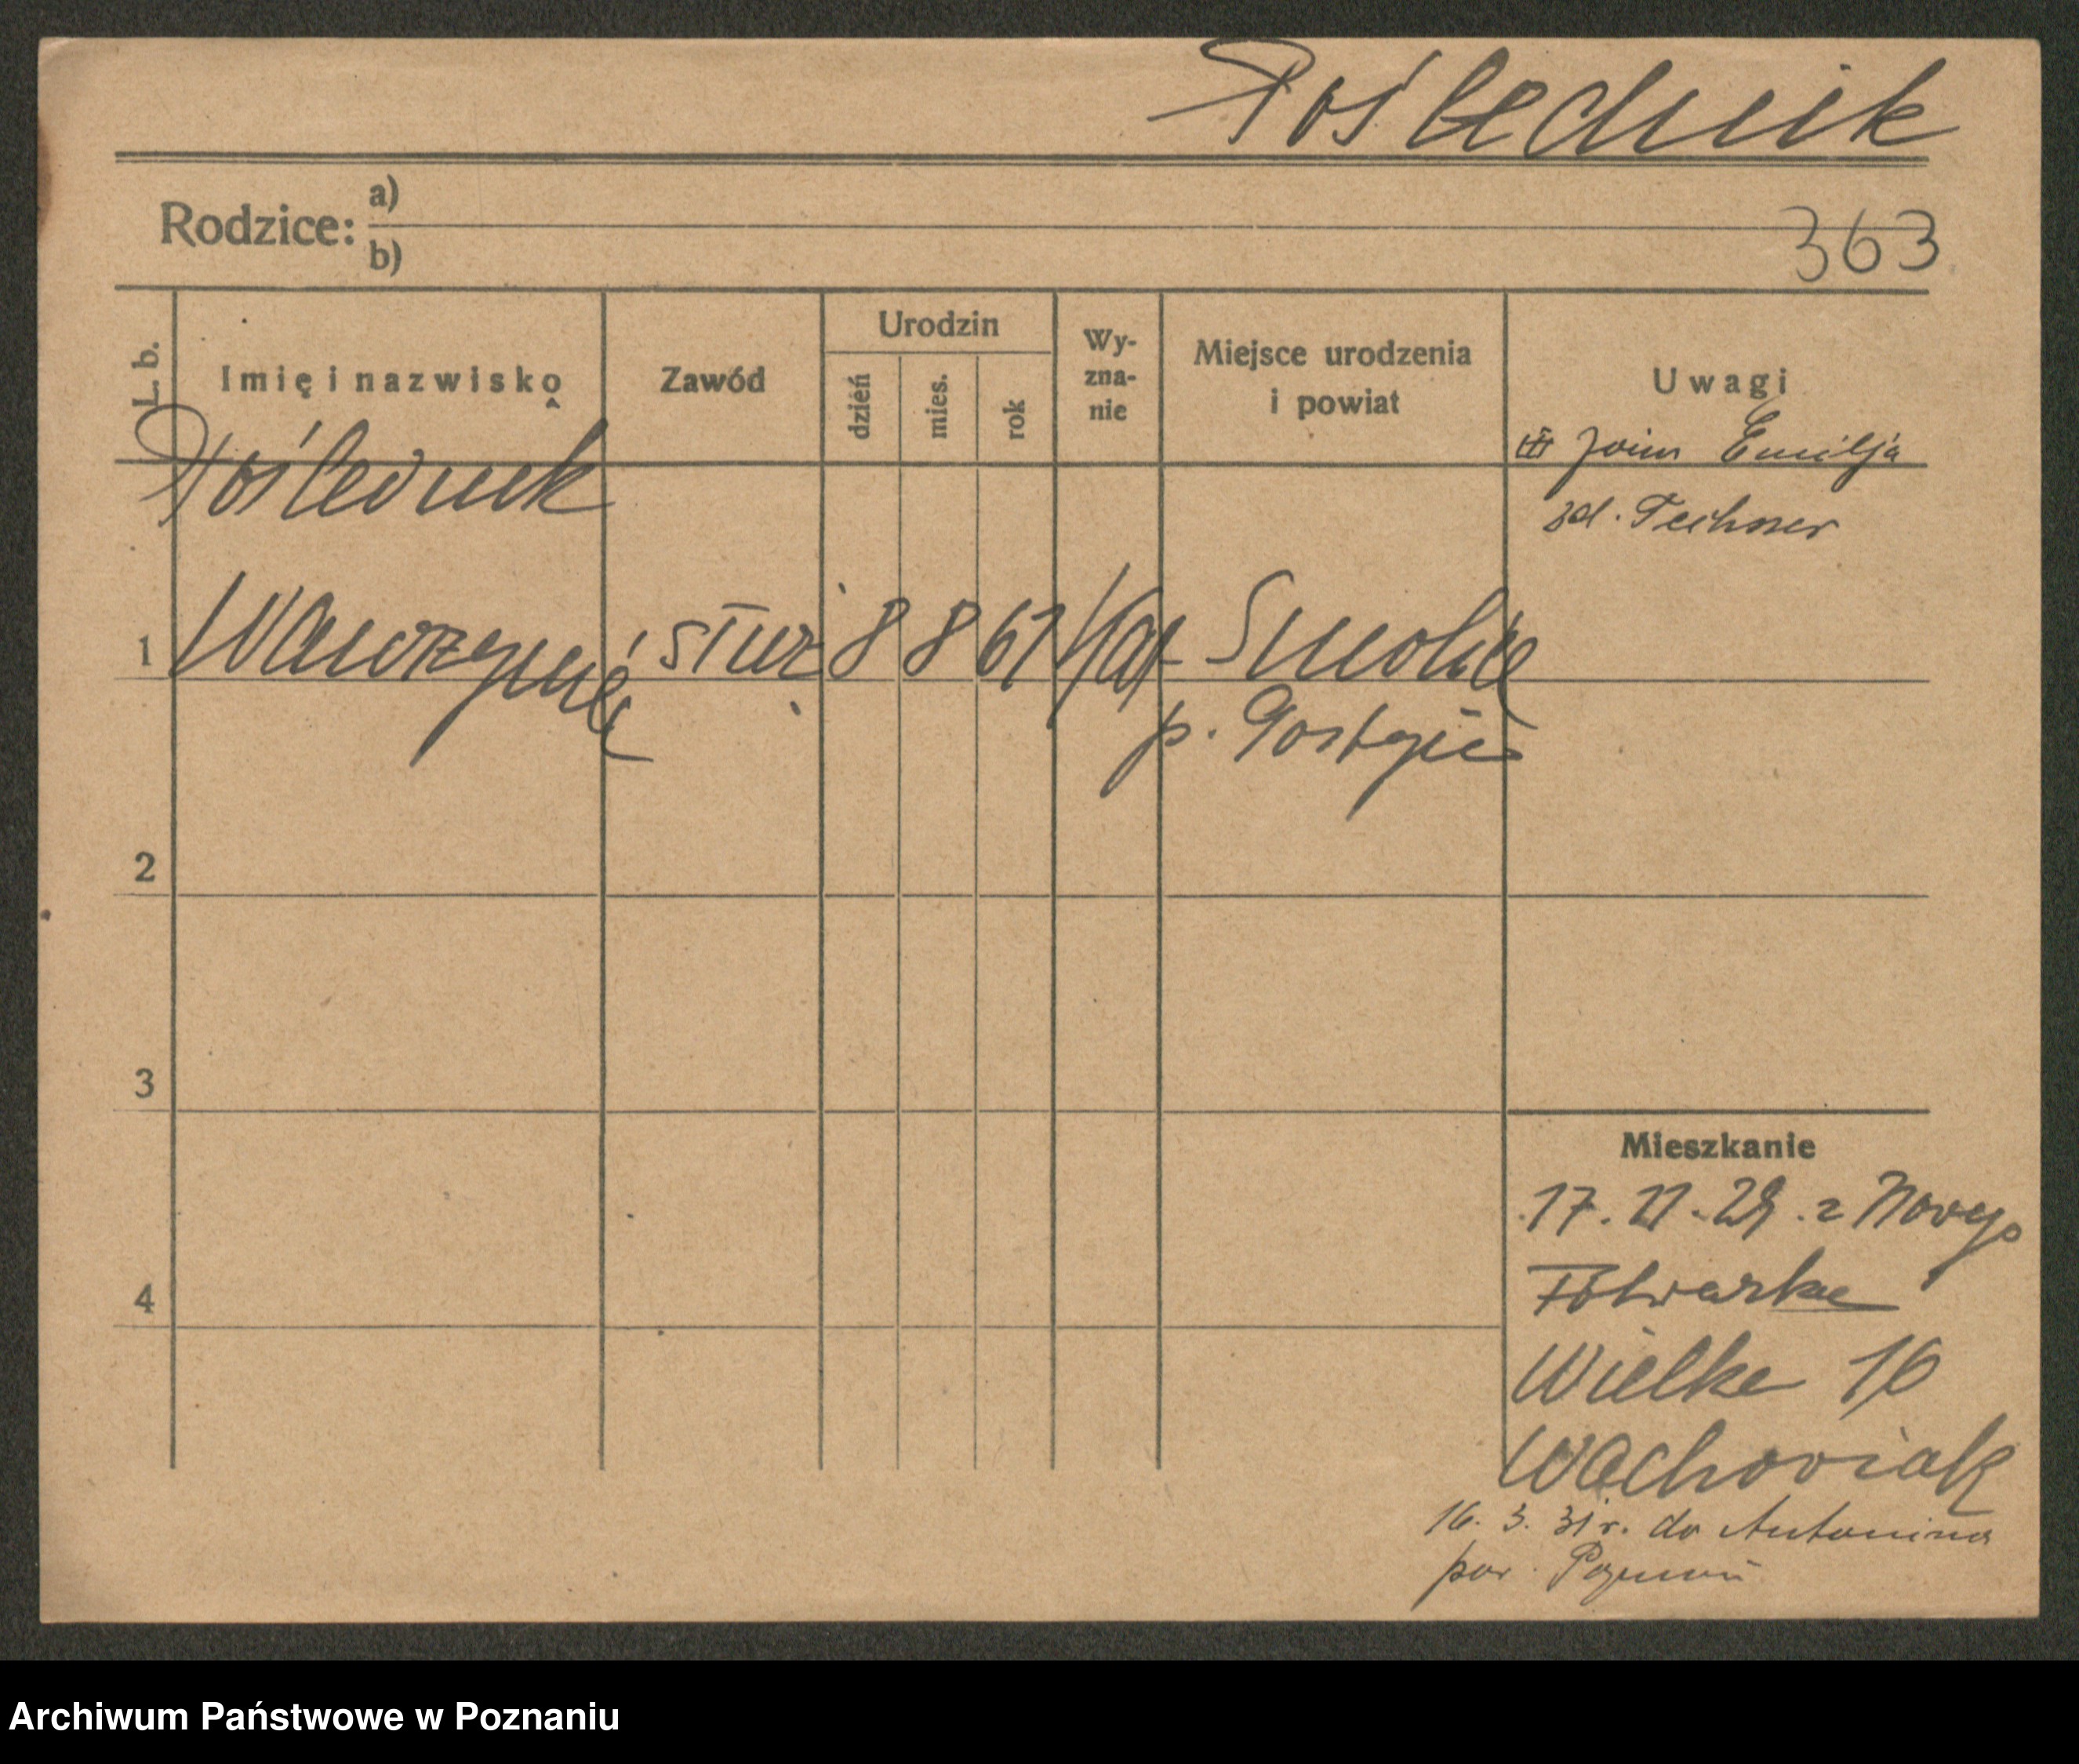 Poślednik
Rodzice: a)
b)
363
L. b.
Imię i nazwisko
Zawód
Urodzin
dzień
mies.
rok
Wy-
zna-
nie
Miejsce urodzenia
i powiat
Uwagi
Emilja
zd. Techner
Poślednik
1 Wawrzyniec służ. 8 8 61 kat Smolice
p. Gostyń
2
3
4
Mieszkanie
17. 11. 29. z Nowego
Folwarku
Wielka 16
Wachowiak
16. 3. 31 r. do Antonina
pow. Poznań
Archiwum Państwowe w Poznaniu